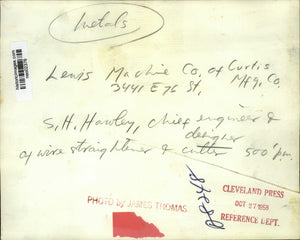 Metals
Lewis Machine Co. of Curtis
3441 E 76 St, Mfg. Co.
S. H. Hawley, chief engineer &
designer
of wire straightener & cutter 500'pm.
PHOTO by JAMES THOMAS
CLEVELAND PRESS
OCT 27 1953
REFERENCE DEPT.